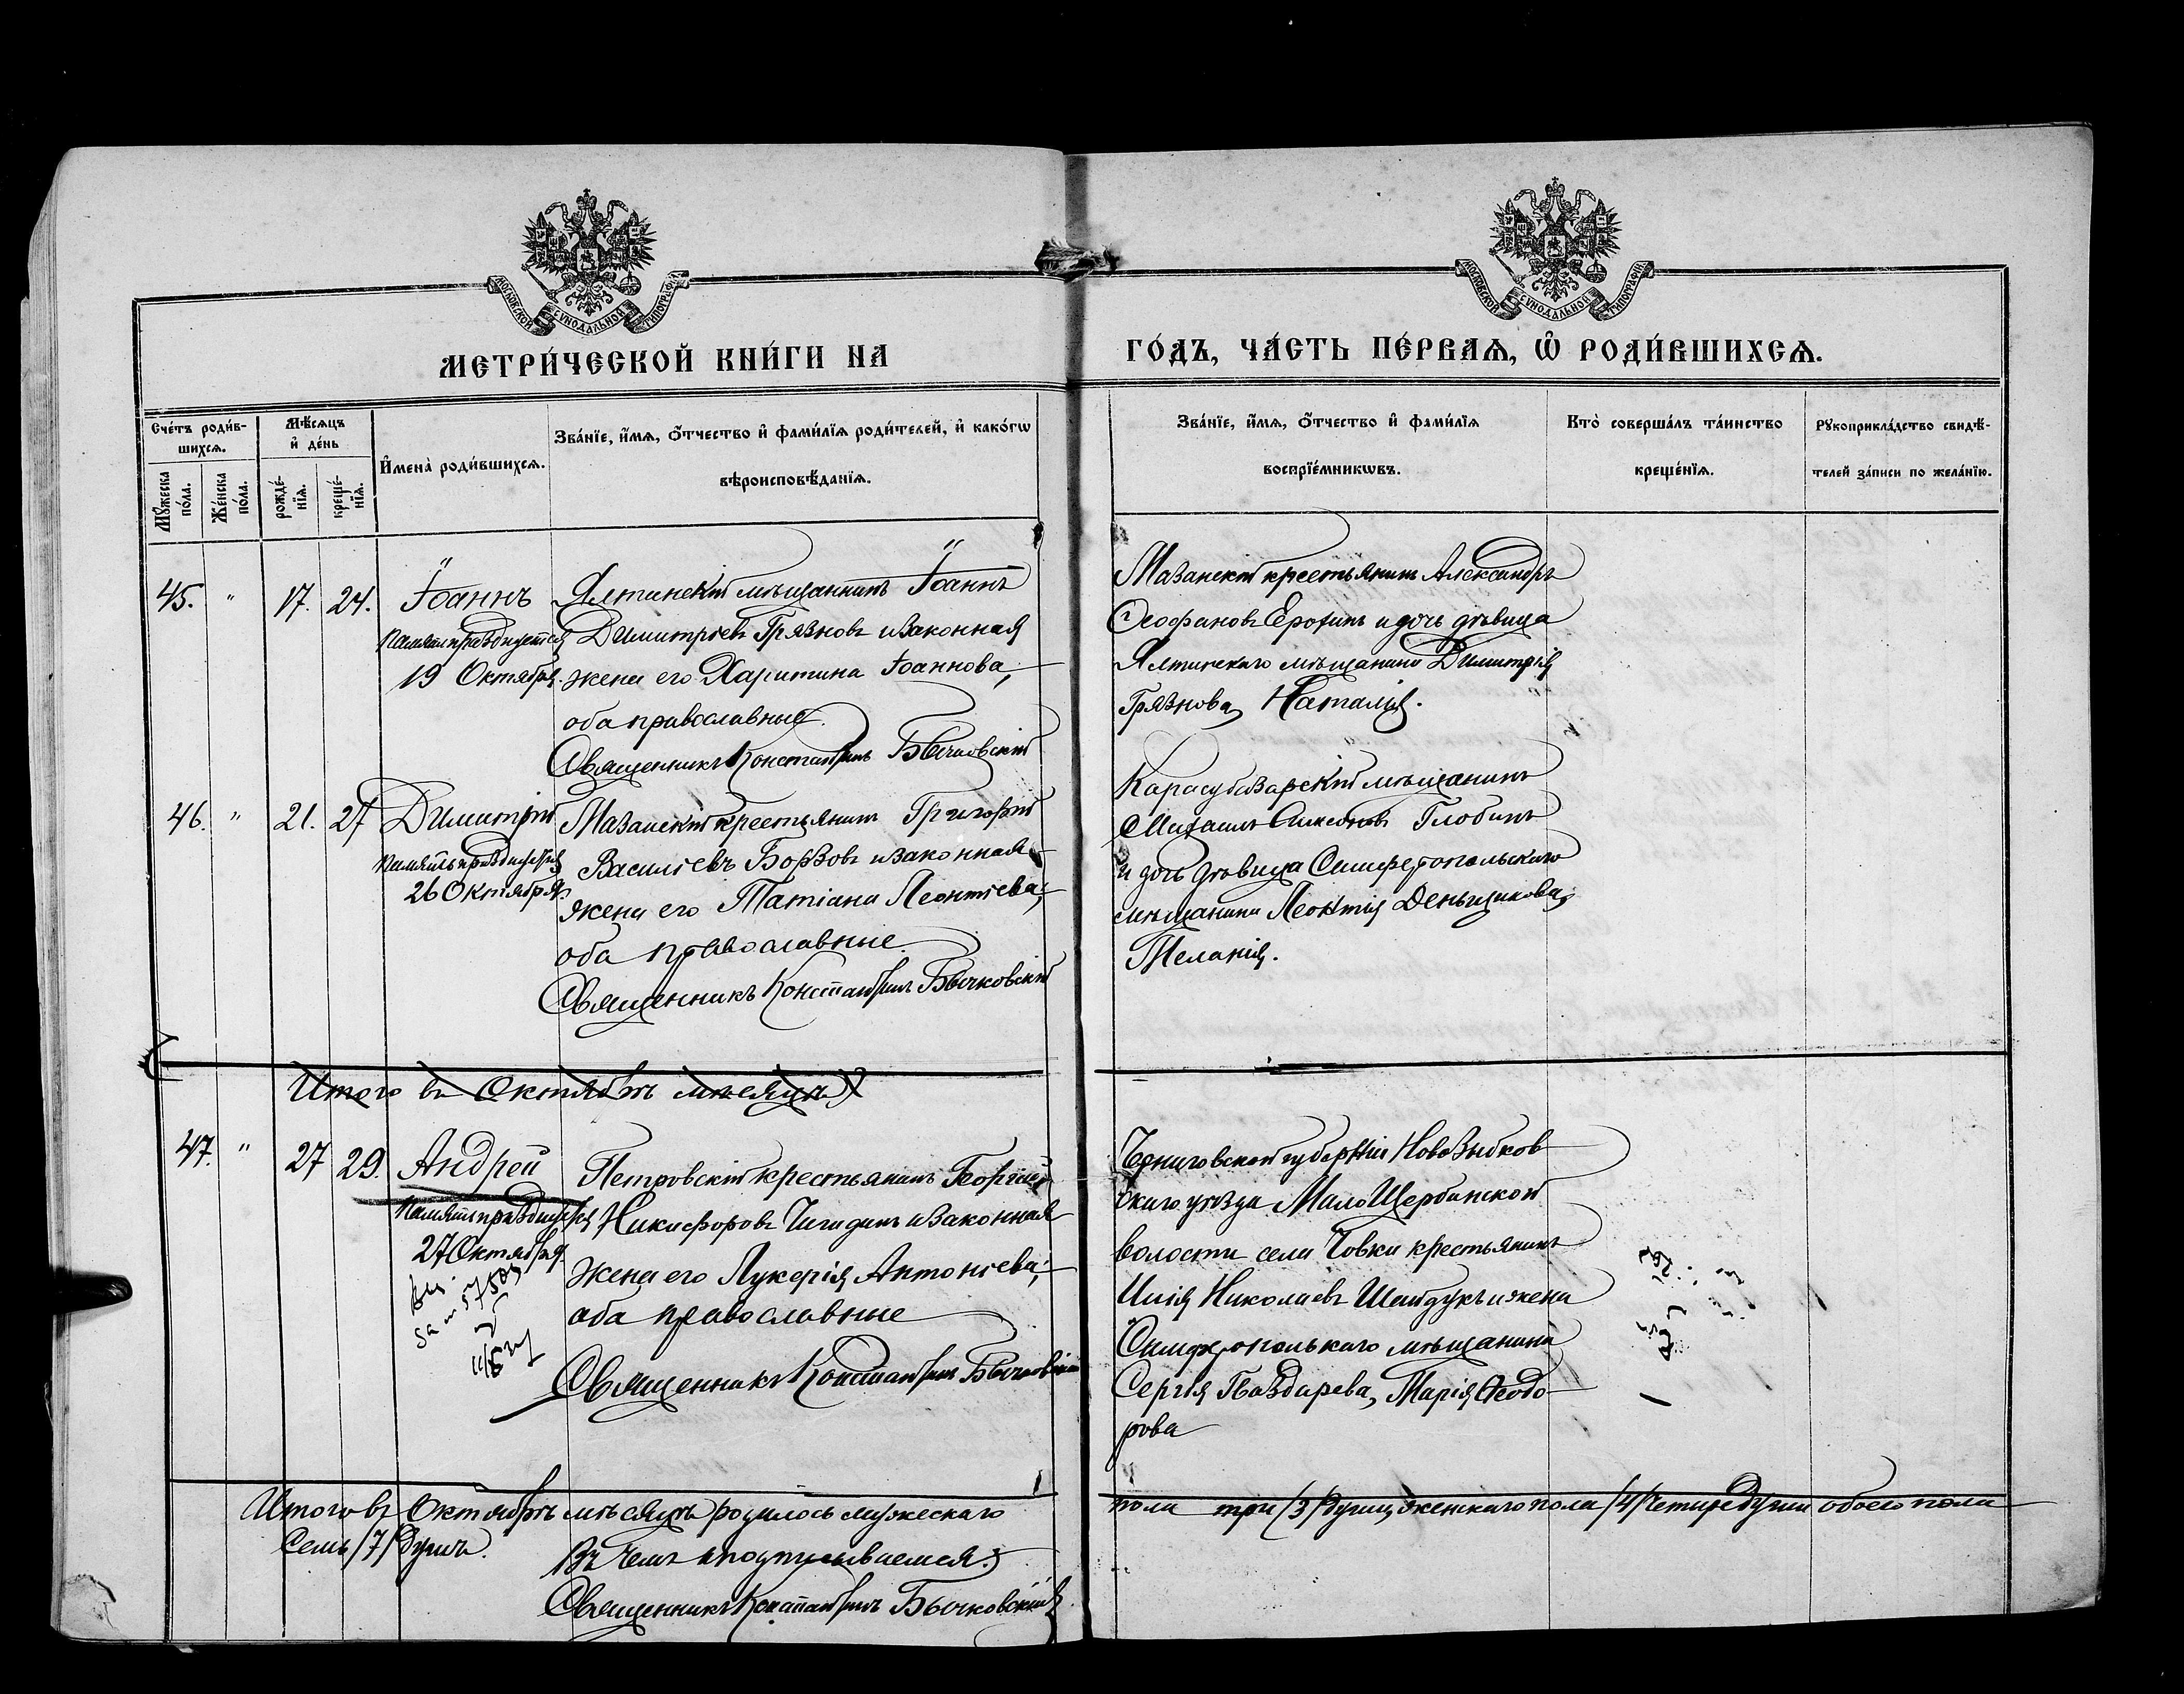 МОСКОВСКОЙ СѴНОДАЛЬНОЙ ТИПОГРАФІИ
МОСКОВСКОЙ СѴНОДАЛЬНОЙ ТИПОГРАФІИ
МЕТРИ́ЧЕСКОЙ КНИ́ГИ НА
ГО́ДЪ, ЧА́СТЬ ПЕ́РВАѦ, Ѽ РОДИ́ВШИХСѦ.
Сче́тъ роди́в-
шихсѧ.
Мꙋ́жеска по́ла.
Же́нска по́ла.
Мѣ́сѧцъ и҆ де́нь
рожде́-
нїѧ.
креще́-
нїѧ.
И҆мена̀ роди́вшихсѧ.
Зва́нїе, и҆́мѧ, ѻ҆́тчество и҆ фами́лїѧ роди́телей, и҆ како́гѡ
вѣроисповѣ́данїѧ.
Зва́нїе, и҆́мѧ, ѻ҆́тчество и҆ фами́лїѧ
воспрїе́мникѡвъ.
Кто̀ соверша́лъ та́инство
креще́нїѧ.
Рꙋкоприкла́дство свидѣ́-
телей за́писи по жела́нїю.
45. " 17. 24. Іоаннъ
Память празднуется
19 Октября.
Ялтинскій мѣщанинъ Іоаннъ
Димитріевъ Грязновъ и законная
жена его Харитина Іоаннова,
оба православные.
Священникъ Константинъ Бычковскій
Мазанскій крестьянинъ Александръ
Ѳеофановъ Ерохинъ и дочь дѣвица
Ялтинскаго мѣщанина Димитрія
Грязнова, Наталія.
46. " 21. 27 Димитрій
Память празднуется
26 Октября.
Мазанскій крестьянинъ Григорій
Васильевъ Борзовъ и законная
жена его Татіана Леонтіева,
оба православные.
Священникъ Константинъ Бычковскій
Карасубазарскій мѣщанинъ
Михаилъ Симеоновъ Глобинъ
и дочь дѣвица Симферопольскаго
мѣщанина Леонтія Деньщикова,
Меланія.
Итого въ Октябрѣ мѣсяцѣ
47. " 27 29. Андрей
Память празднуется
27 Октября.
Петровскій крестьянинъ Георгій
Никифоровъ Чигидинъ и законная
жена его Лукерія Антоніева,
оба православные
Священникъ Константинъ Бычковскій
Черниговской губерніи Новозыбков
скаго уѣзда Мало Щербинской
волости села Човки крестьянинъ
Илія Николаевъ Шайдукъ и жена
Симферополькаго мѣщанина
Сергѣя Баздарева, Марія Ѳеодо-
рова
Итого въ Октябрѣ мѣсяцѣ родилось мужескаго
пола три /3/ души, женскаго пола /4/ четыре души обоего пола
Семь /7/ душъ.
Въ чемъ и подписываемся:
Священникъ Константинъ Бычковскій